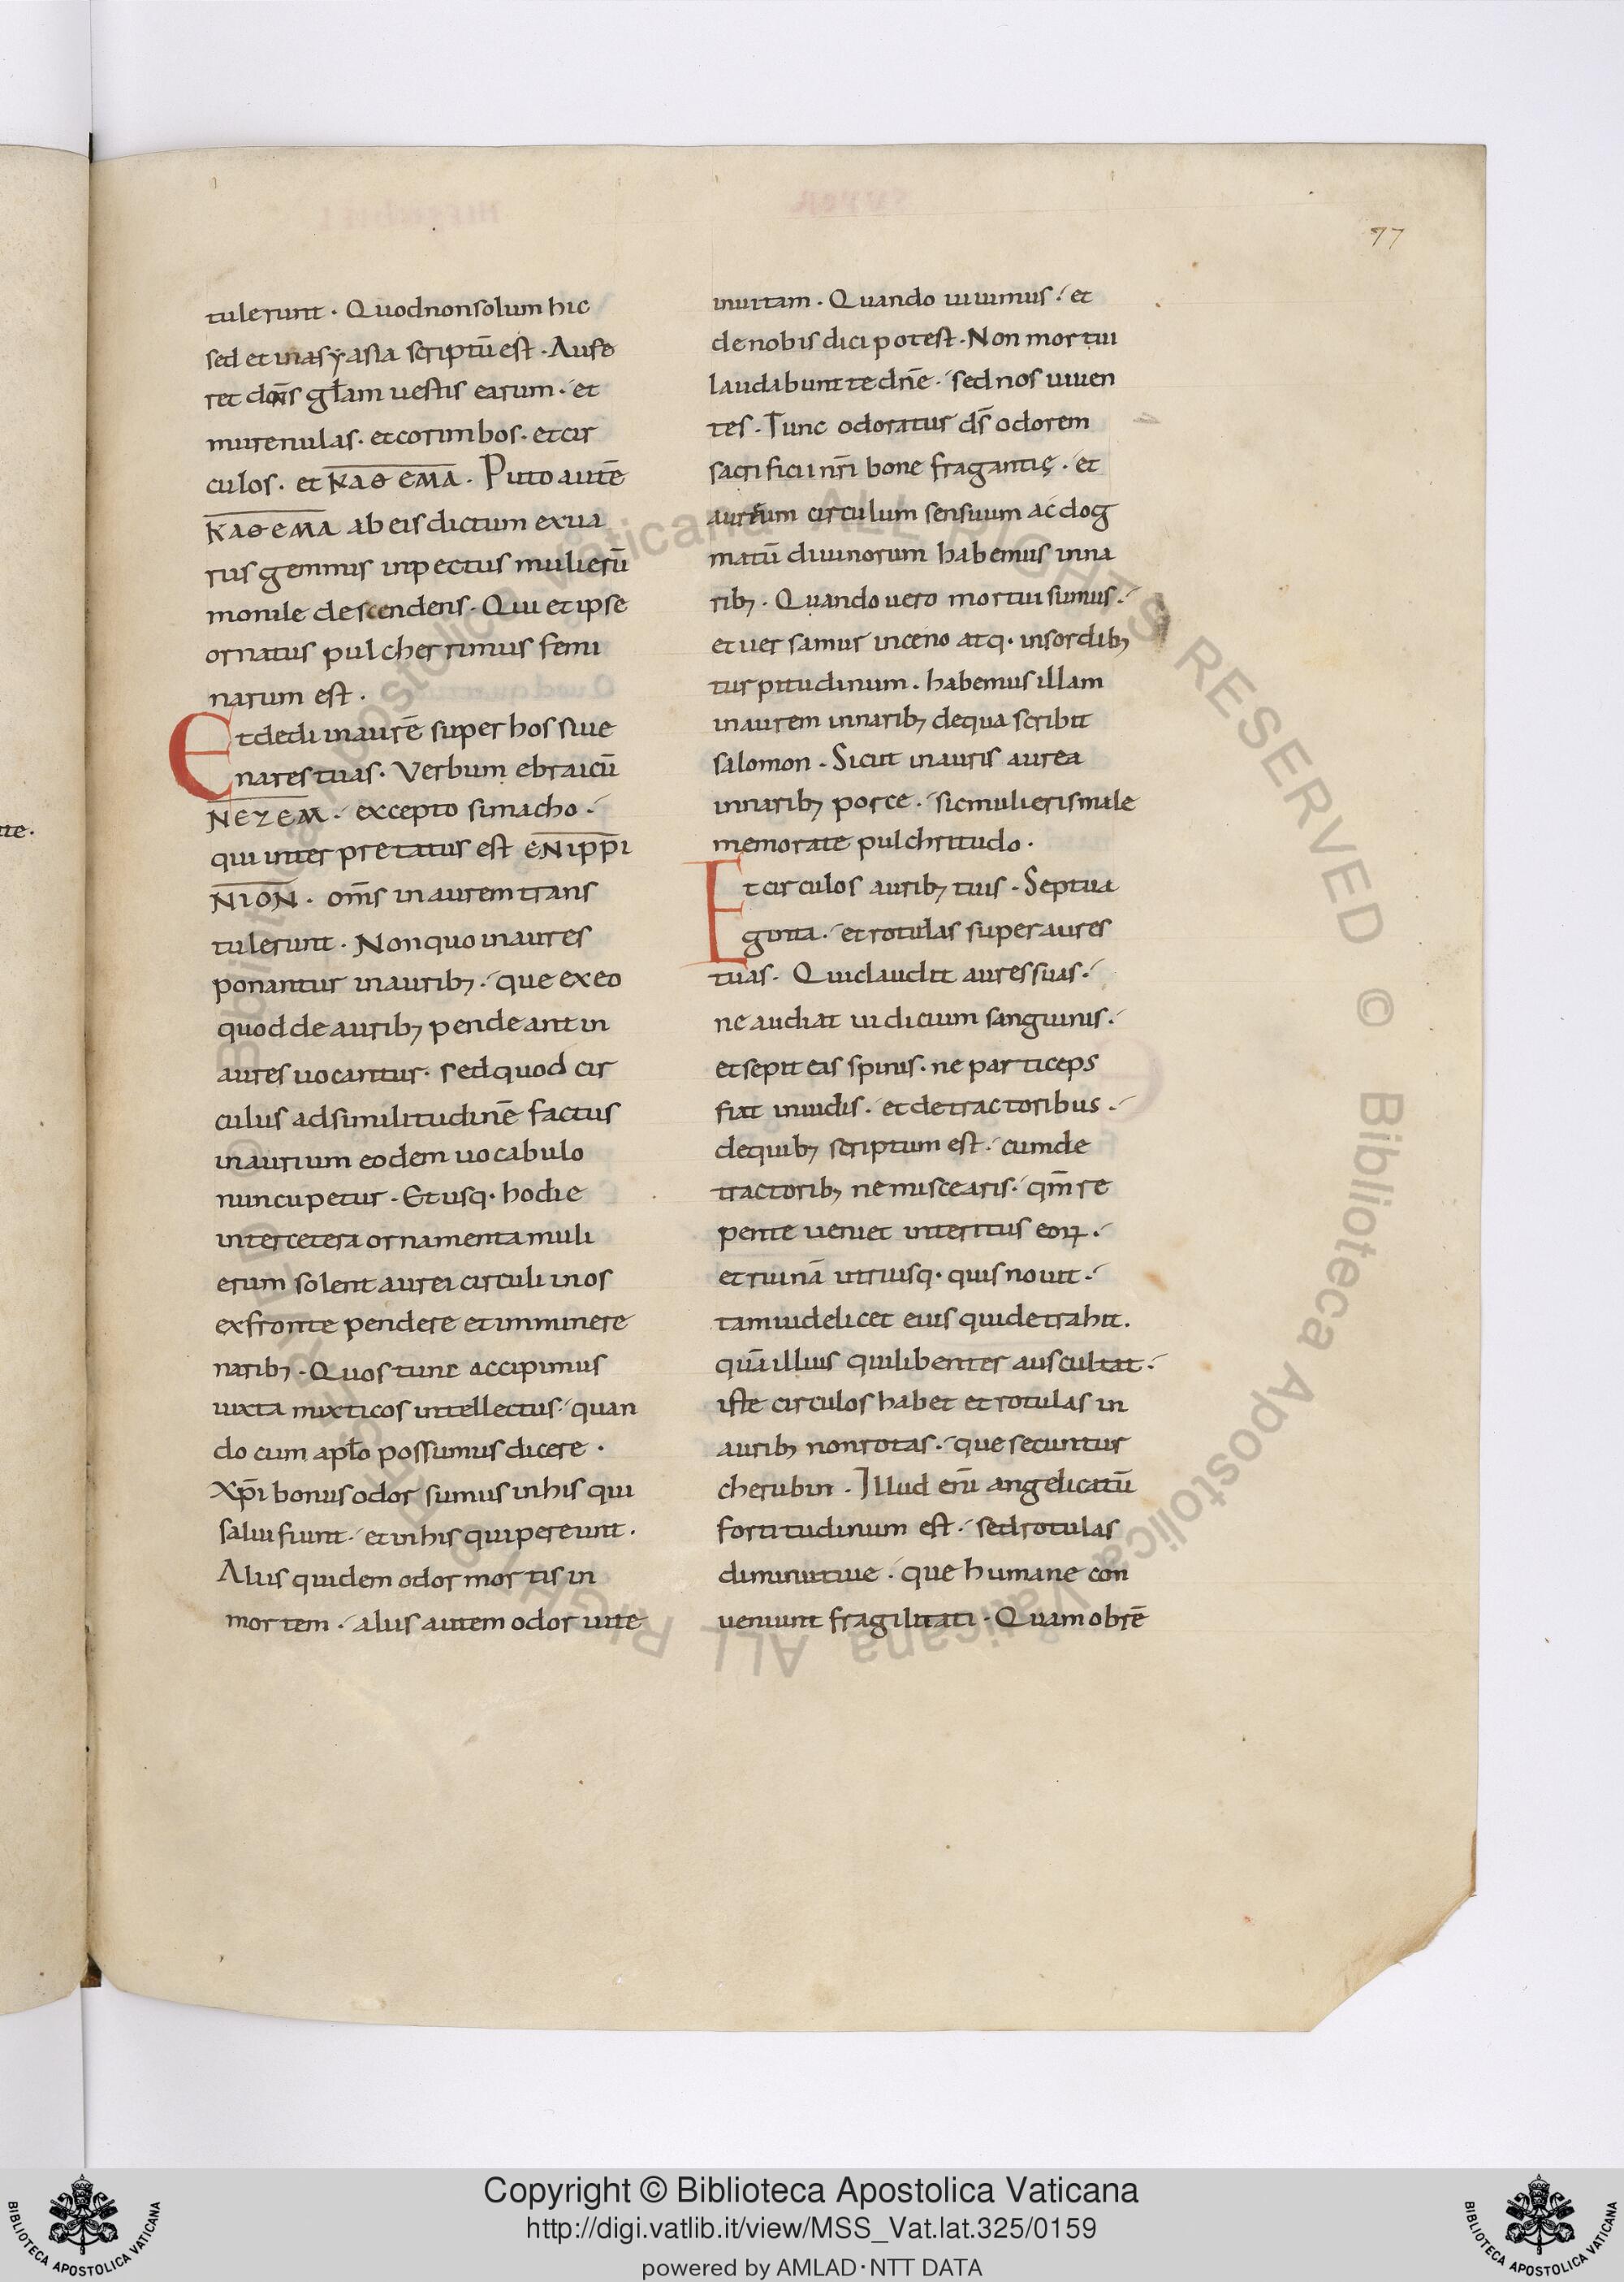 77
tulerunt · Quod non solum hic
sed et in asẏasta scriptū est · Aufe
ret dn̄s gl̄am uestis earum ·́ et
murenulas · et corimbos · et cir
culos · et KAΘEMA · Puto autē
KAΘEMA ab eis dictum ex ua
rus gemmis in pectus mulierū
monile descendens · Qui et ipse
ornatus pulcherrimus femi
narum est ·
Et dedi inaurē super hos siue
nares tuas · Verbum ebraicū
NEZEM ·́ excepto simacho ·́
qui inter pretatus est ENIPPI
NION · om̄s in aurem trans
tulerunt · Non quo inaures
ponantur in aurib; ·́ que ex eo
quod de aurib; pendeant in
aures uocantur · sed quod cir
culus ad similitudinē factus
inaurium eodem uocabulo
nuncupetur · Et usq· hodie
inter cetera ornamenta muli
erum solent aurei circuli in os
ex fronte pendere et imminere
narib; · Quos tunc accipimus
iuxta mixticos intellectus ·́ quan
do cum apl̄o possumus dicere ·
Xp̄i bonus odor sumus in his qui
salui fiunt ·́ et in his qui pereunt ·
Aliis quidem odor mortis in
mortem ·́ aliis autem odor uite
in uitam · Quando uiuimus ·́ et
de nobis dici potest · Non mortui
laudabunt te dn̄e ·́ sed nos uiuen
tes · Tunc odoratur ds̄ odorem
sacrificii nr̄i bone fragantię ·́ et
aureum circulum sensuum ac dog
matū diuinorum habemus in na
rib; · Quando uero mortui sumus ·́
et uersamur in ceno atq· in sordib;
turpitudinum · habemus illam
inaurem in narib; de qua scribit
salomon · Sicut inauris aurea
in narib; porce ·́ sic mulieris male
memorate pulchritudo ·
Et circulos aurib; tuis · Septua
ginta ·́ et rotulas super aures
tuas · Qui claudit aures suas ·́
ne audiat iudicium sanguinis ·́
et sepit eas spinis · ne particeps
fiat inuidis ·́ et detractoribus ·́
de quib; scriptum est ·́ cum de
tractorib; ne miscearis ·́ qm̄ re
pente ueniet interitus eoꝝ ·́
et ruinā utriusq· quis nouit ·́
tam uidelicet eius qui detrahit ·
quā illius qui libenter auscultat ·́
iste circulos habet et rotulas in
aurib; non rotas ·́ que secuntur
cherubin · Illud eni̅ angelicatū
fortitudinum est ·́ sed rotulas
diminutiue ·́ que humane con
ueniunt fragilitati · Quam obrē
Copyright © Biblioteca Apostolica Vaticana
http://digi.vatlib.it/view/MSS_Vat.lat.325/0159
powered by AMLAD·NTT DATA